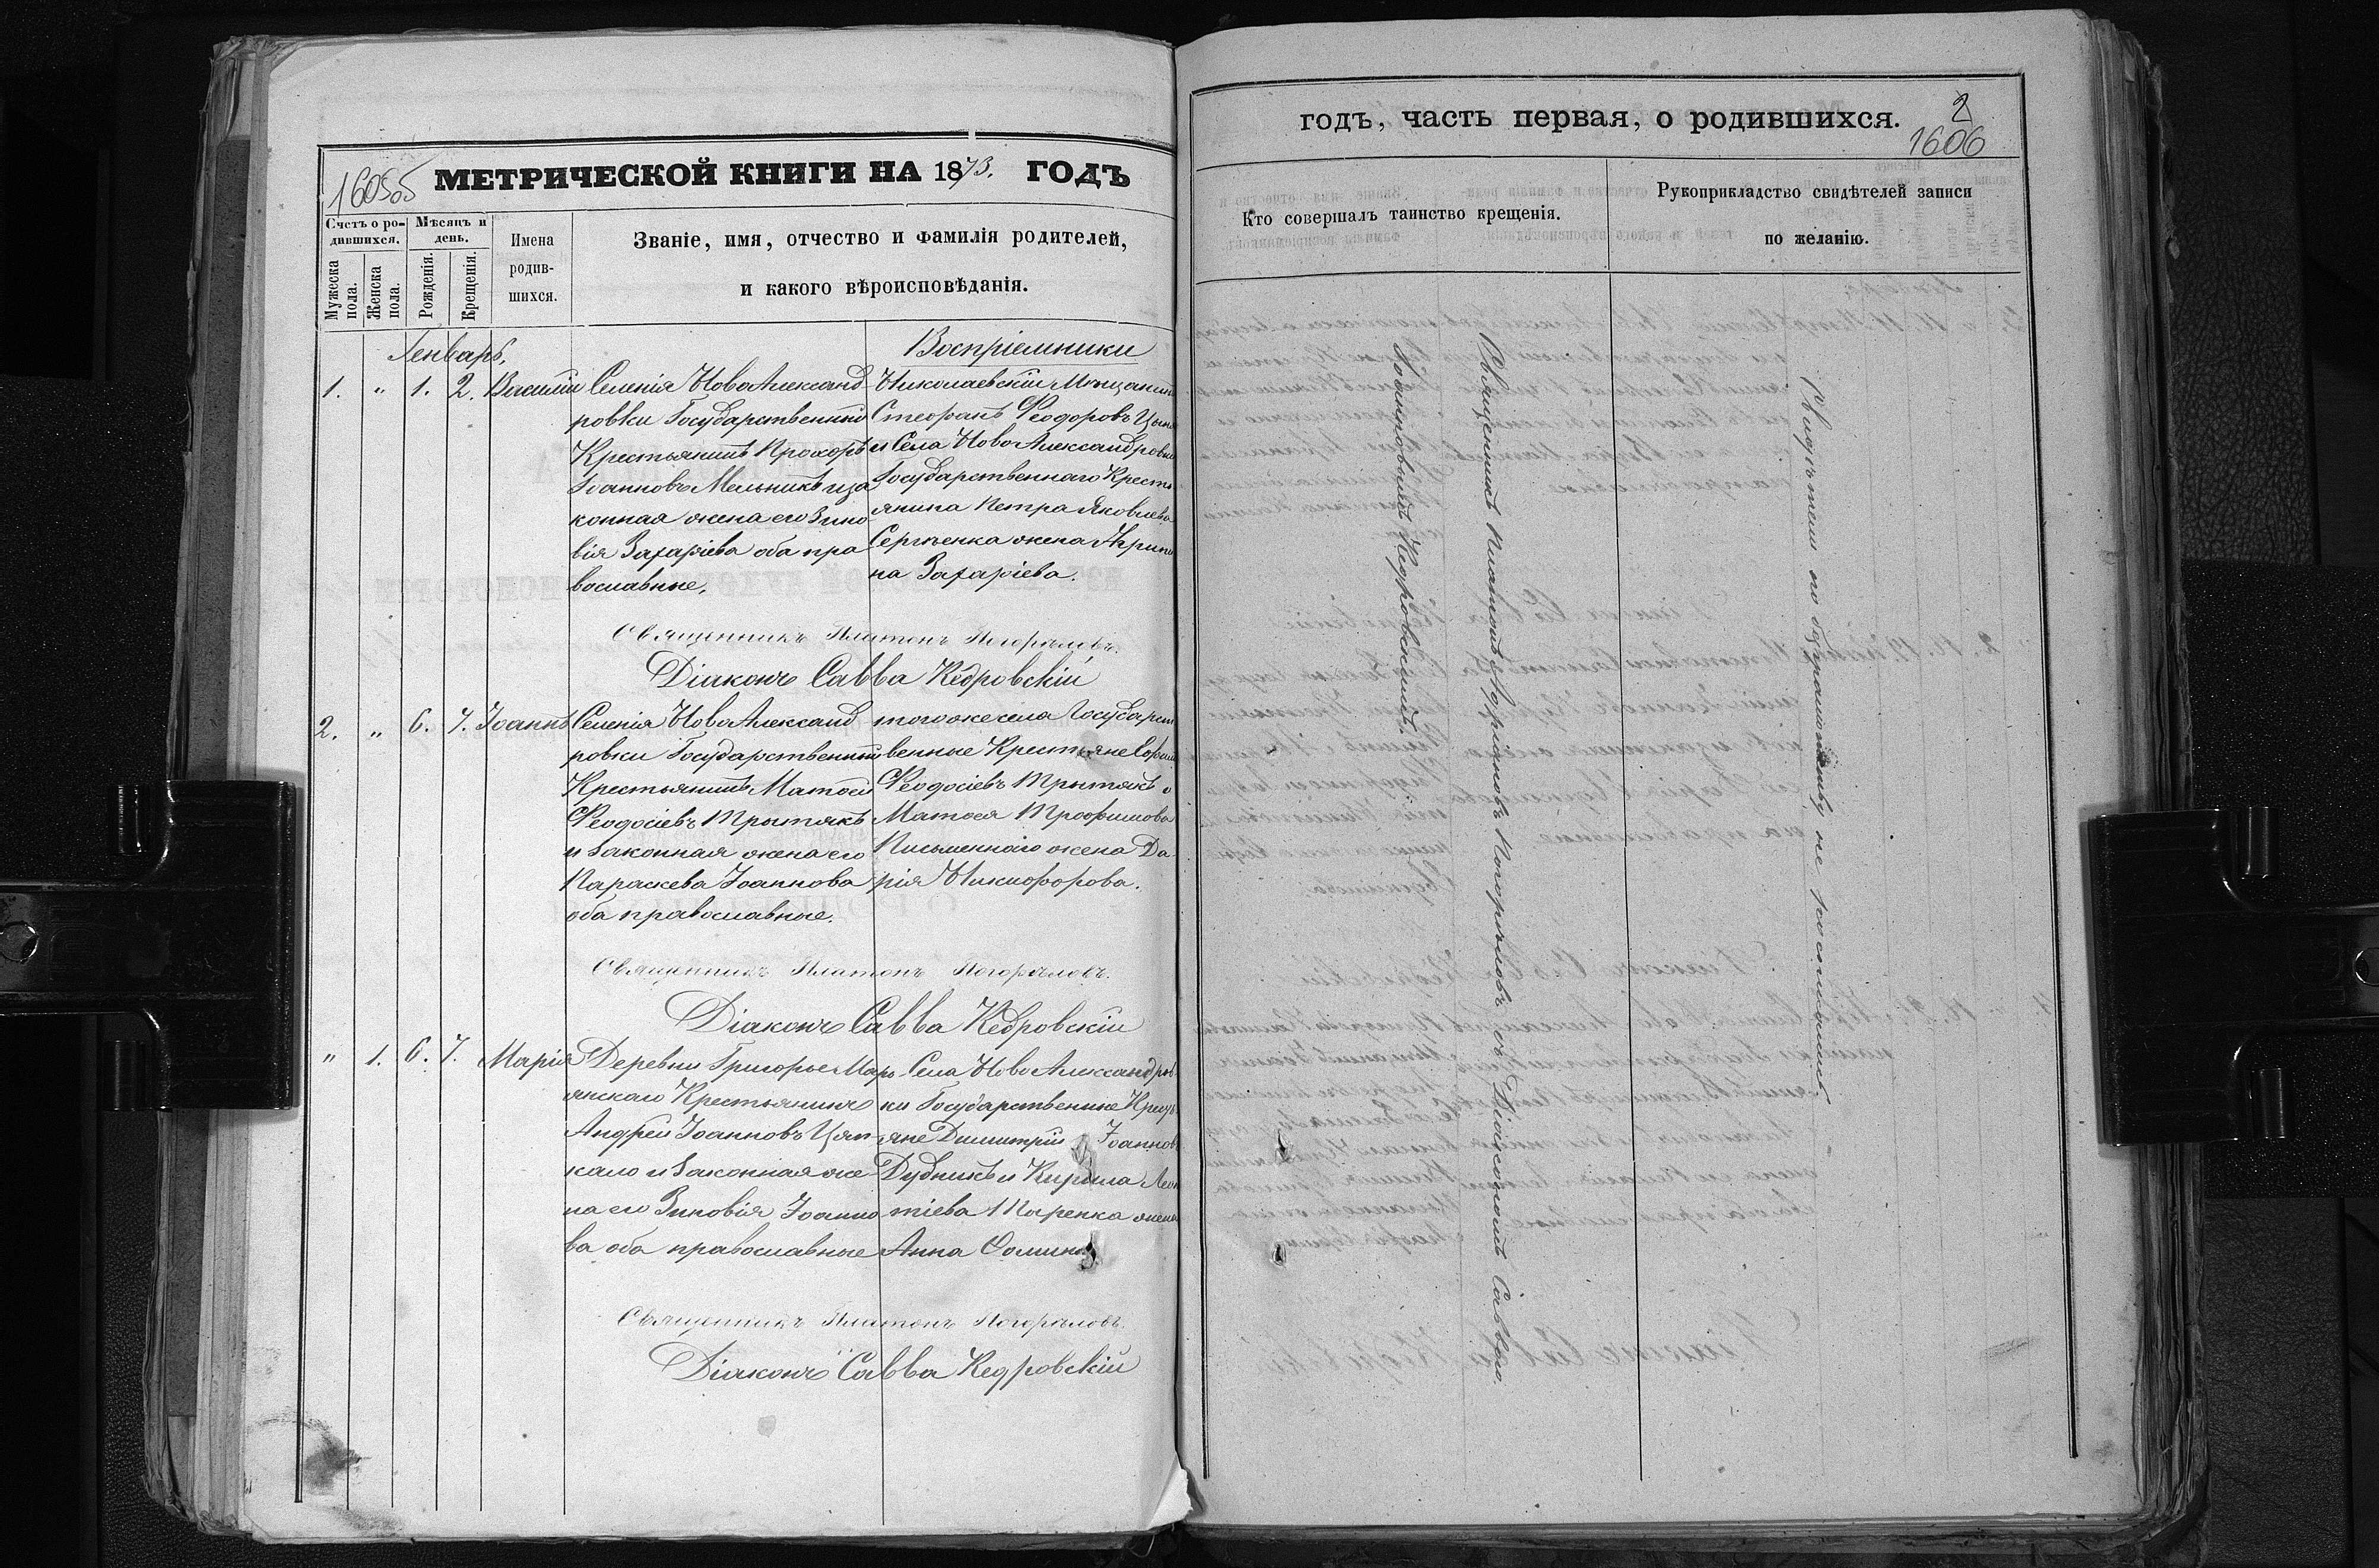 МЕТРИЧЕСКОЙ КНИГИ НА 1873. ГОДЪ
Счетъ о родившихся.
Мѣсяцъ и день.
Мужеска пола.
Женска пола.
Рожденія.
Крещенія.
Имена
родив-
шихся.
Званіе, имя, отчество и фамилія родителей,
и какого вѣроисповѣданія.
Генварь,
Воспріемники
1. " 1. 2. Василій
Селенія НовоАлександ
ровки Государственный
Крестьянинъ Прохоръ
Іоанновъ Мельникъ и за
конная жена его Зино
вія Захаріева оба пра
вославные.
Николаевскій Мѣщанин
Стефанъ Феодоровъ
и Села НовоАлександровки
Государственнаго Кресть
янина Петра Яковлева
Сергіенка жена Ирин
на Захаріева.
Священникъ Платонъ Погорѣловъ.
Діаконъ Савва Кедровскій
2. " 6. 7. Іоаннъ
Селенія НовоАлександ
ровки Государственный
Крестьянинъ Матфей
Феодосіевъ Трытякъ
и законная жена его
Параскева Іоаннова
оба православные.
тогоже села Государст
венные Крестьяне
Феодосіевъ Трытякъ и
Матфея Трофимова
Письменнаго жена Да
рія Никифорова.
Священникъ Платонъ Погорѣловъ.
Діаконъ Савва Кедровскій
" 1. 6. 7. Марія
Деревни ГригорьеМарь
янскаго Крестьянинъ
Андрей Іоанновъ Цяп
кало и законная же
на его Зиновія Іоанно
ва оба православные
Села НовоАлександров
ки Государственные Кресть
яне Димитрій Іоаннов
Дудникъ и Кирила Леон
тіева жена
Анна Фомина
Священникъ Платонъ Погорѣловъ.
Діаконъ Савва Кедровскій
годъ, часть первая, о родившихся.
2
1606
Кто совершалъ таинство крещенія.
Рукоприкладство свидѣтелей записи
по желанію.
Священникъ Платонъ Погорѣловъ съ Діакономъ Саввою
Іоанновымъ Кедровскимъ.
Свидѣтели по безграмотству не росписались